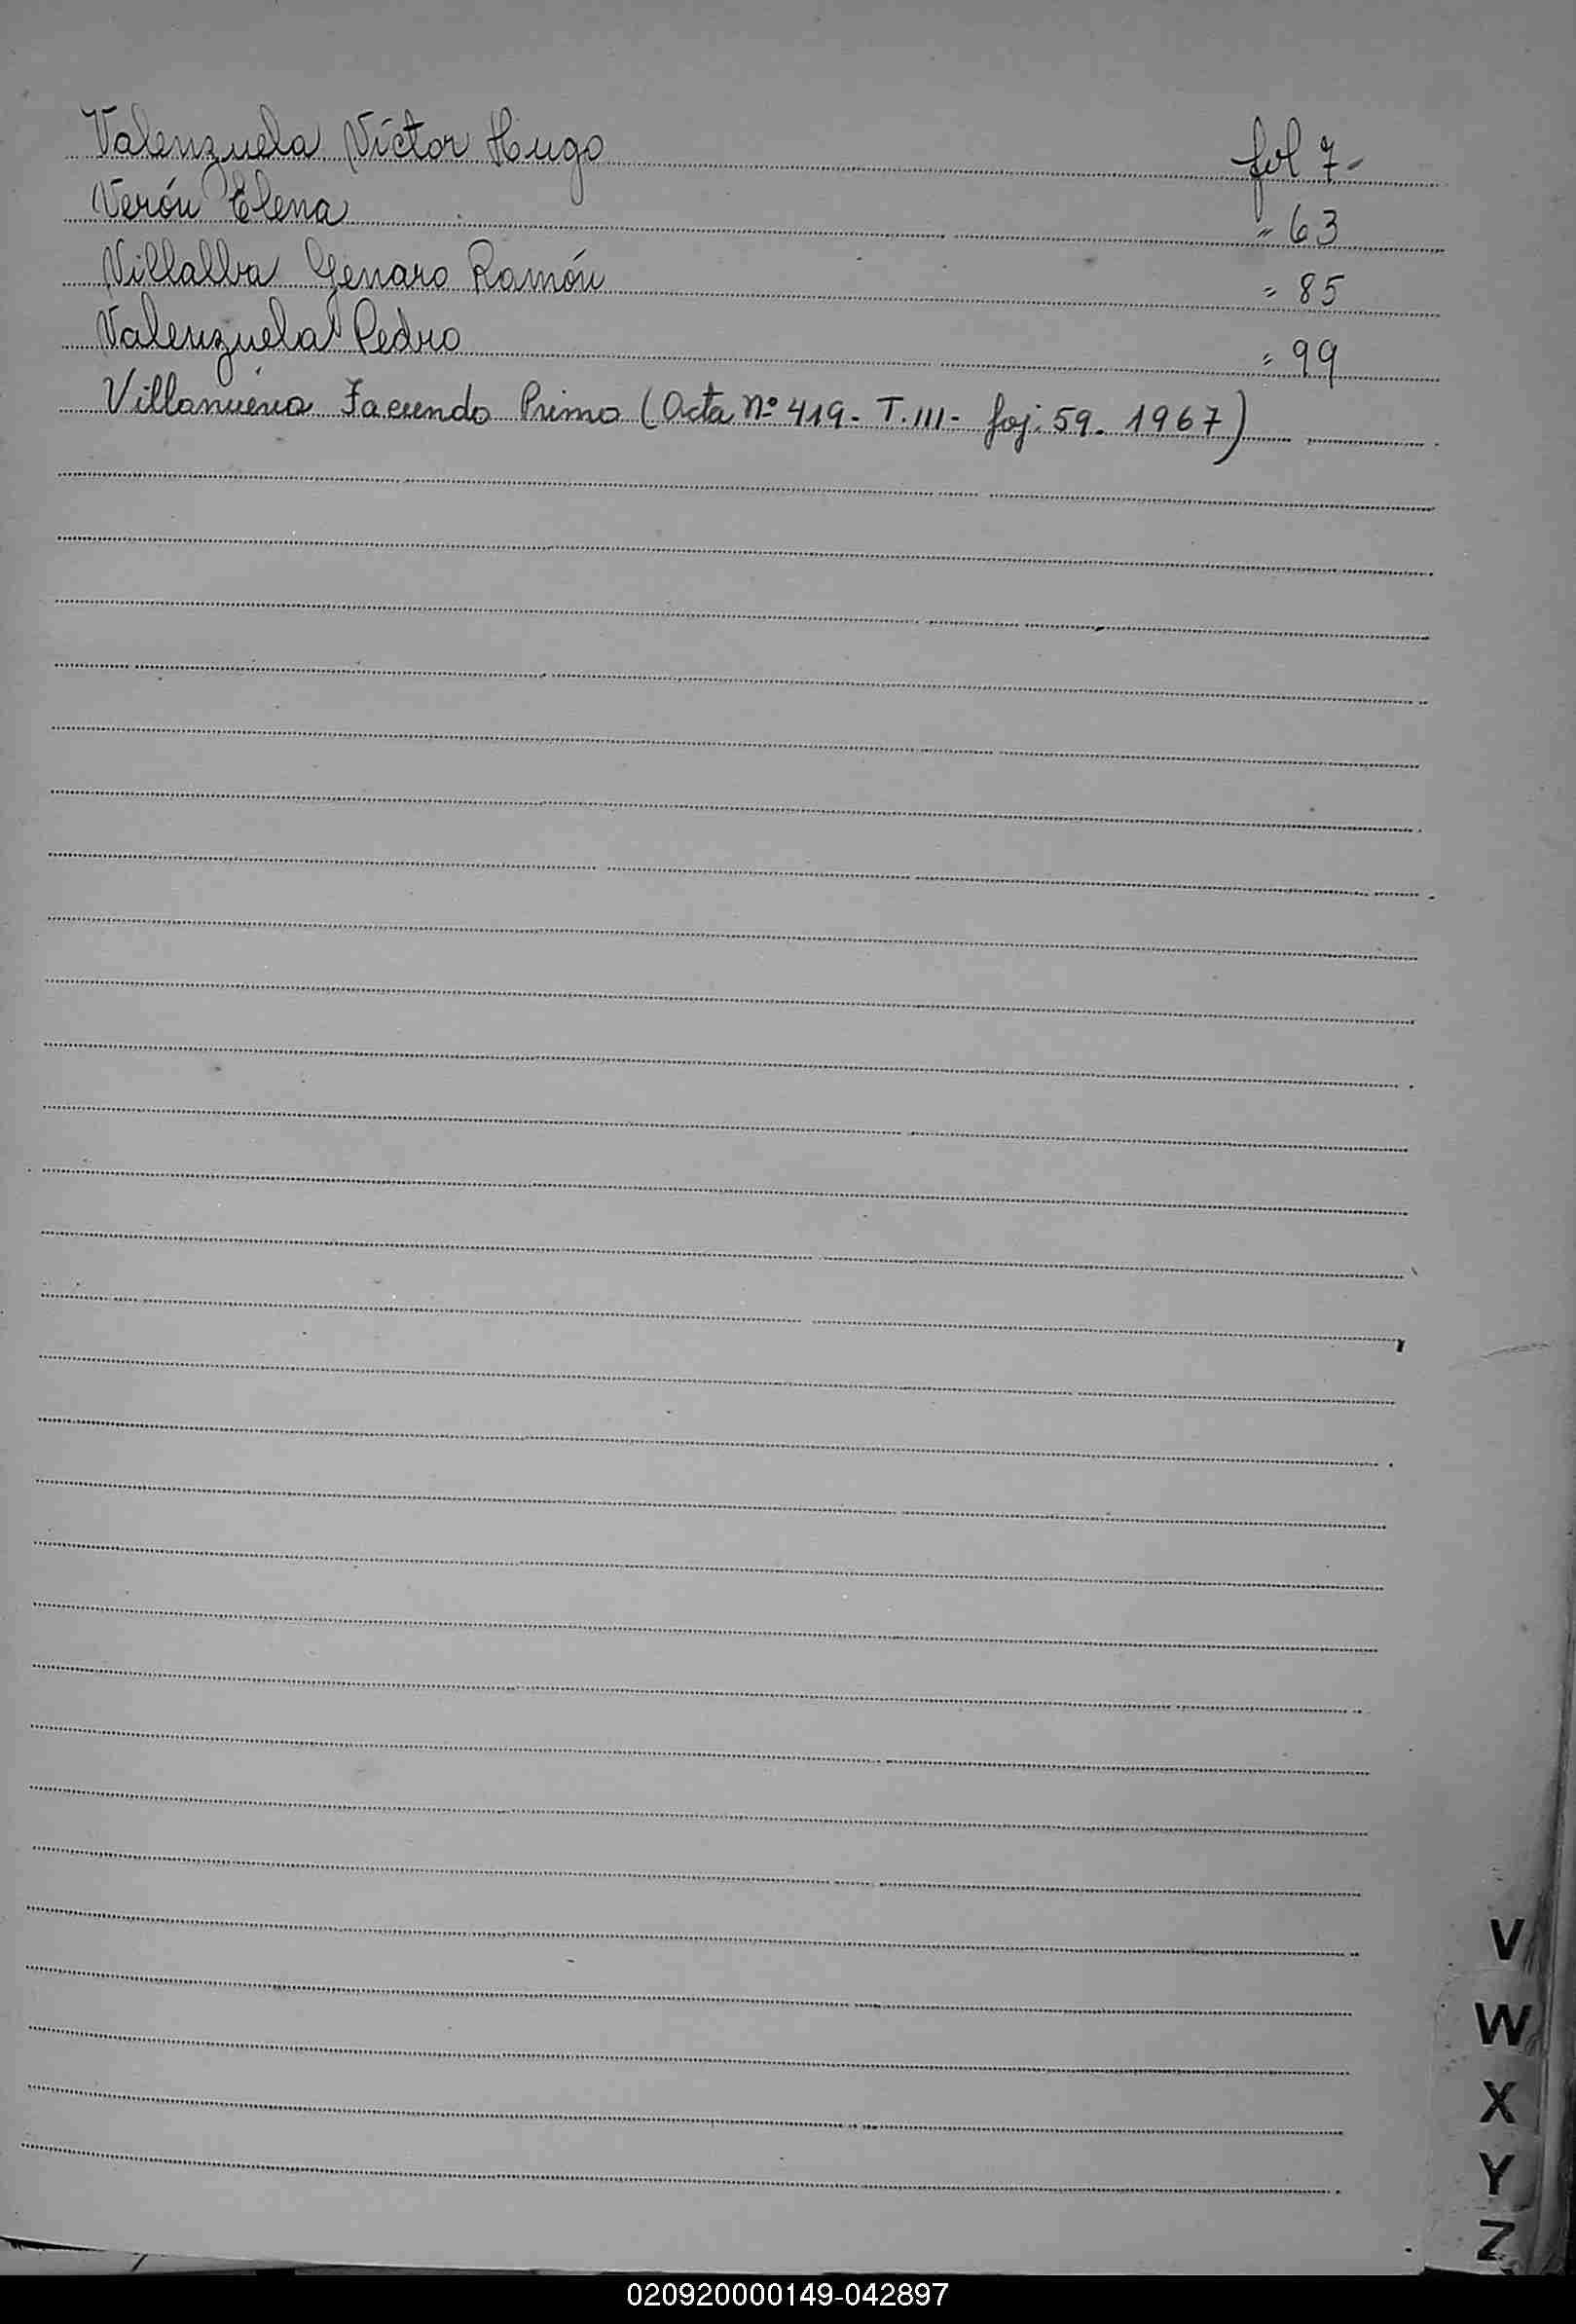 Valenzuela Víctor Hugo fol 7-
Verón Elena " 63
Villalba Genaro Ramón " 85
Valenzuela Pedro " 99
Villanueva Facundo Primo (Acta Nº 419- T.III- foj. 59. 1967)
V
W
X
Y
Z
020920000149-042897